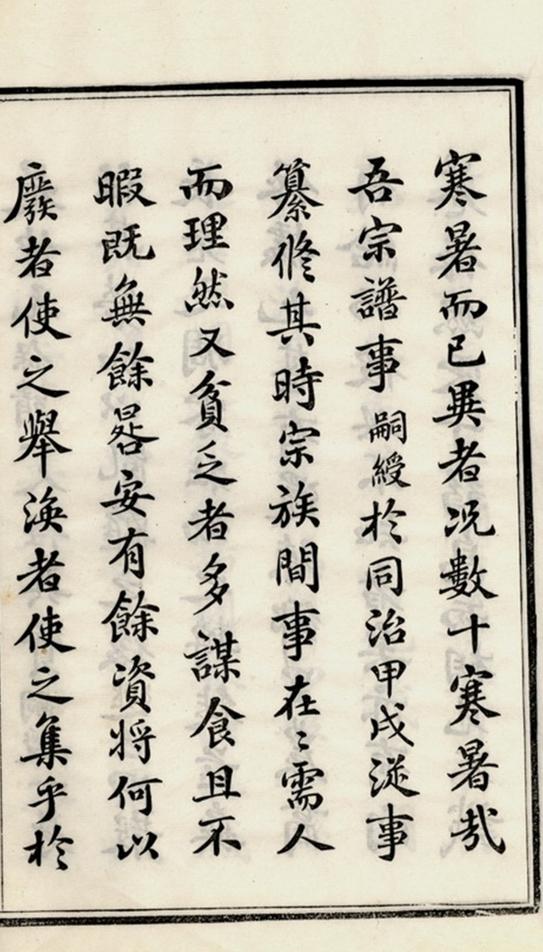 寒暑而已異者况數十寒暑哉
吾宗譜事嗣綬於同治甲戌從事
纂修其時宗族間事在〻需人
而理然又貧乏者多謀食且不
暇既無餘晷安有餘資將何以
廢者使之舉渙者使之集乎於